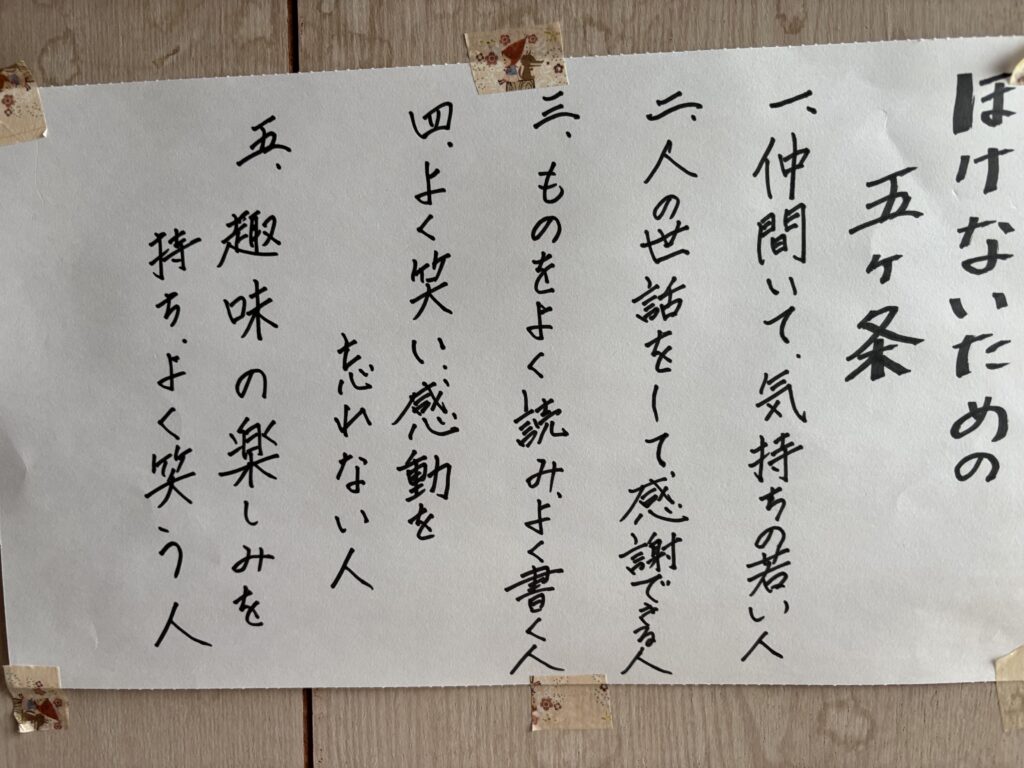 ぼけないための
五ヶ条
一、仲間いて、気持ちの若い人
二、人の世話をして、感謝できる人
三、ものをよく読み、よく書く人
四、よく笑い、感動を
忘れない人
五、趣味の楽しみを
持ち、よく笑う人